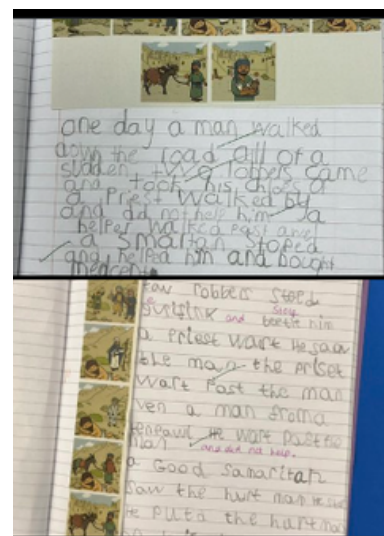 one day a man walked
down the road all of a
sudden two robbers came
and took his cloes a
a Priest walked by
and did not help him a
helper walked past and
a Smartan stoped
and helped him and bought
robbers stoed
and
him
a Priest wart He saw
the man the priset
wart Past the man
ven a man froma
He wart past the
man and did not help.
a Good Samaritan
saw the hurt man He
He puta the hurt man